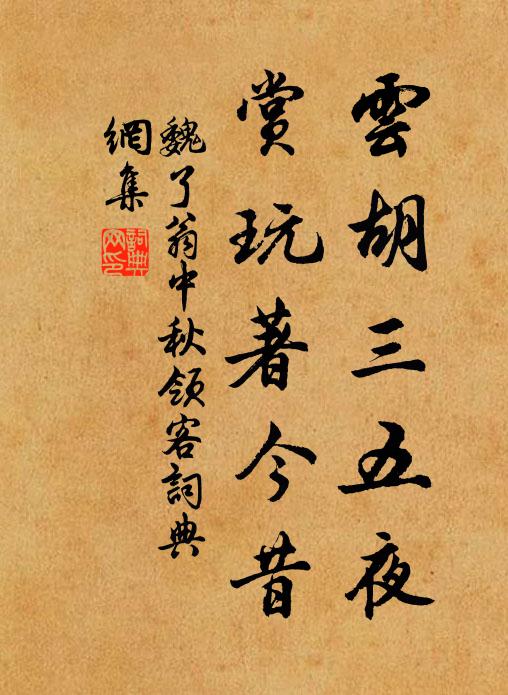 雲胡三五夜
賞玩著今昔
魏了翁中秋領客詞典
網集
詞典
网印